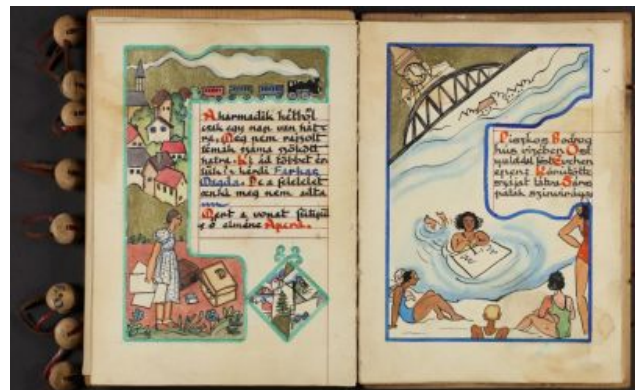 A harmadik hétből
csak egy nap van hát-
ra. Még nem rajzolt
témák száma szökött
hatra. Ki ád többet ér
tük? kérdi Farkas
Magda. De a feleletet
senki meg nem adta
Mert a vonat fütyült
s ő elméne
Piszkos Bodrog
hűs vizében
ködötte
száját tátva Sáros
patak színvirága